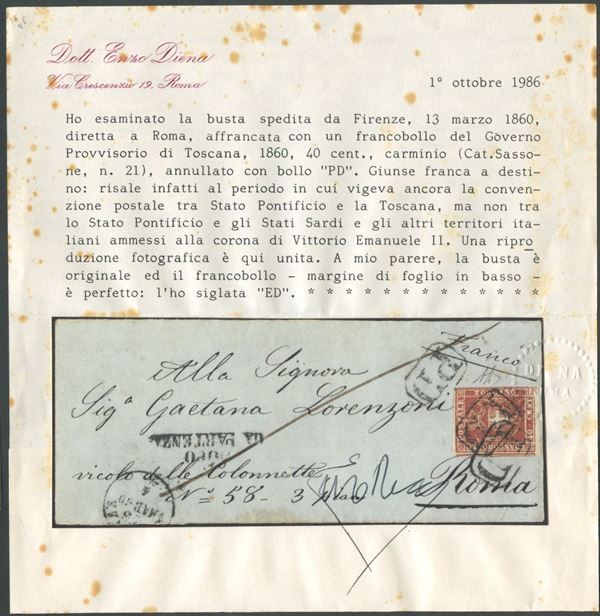 Dott. Enzo Diena
Via Crescenzio 19. Roma
1° ottobre 1986
Ho esaminato la busta spedita da Firenze, 13 marzo 1860,
diretta a Roma, affrancata con un francobollo del Governo
Provvisorio di Toscana, 1860, 40 cent., carminio (Cat.Sasso-
ne, n. 21), annullato con bollo "PD". Giunse franca a desti-
no: risale infatti al periodo in cui vigeva ancora la conven-
zione postale tra Stato Pontificio e la Toscana, ma non tra
lo Stato Pontificio e gli Stati Sardi e gli altri territori ita-
liani ammessi alla corona di Vittorio Emanuele II. Una ripro
duzione fotografica è qui unita. A mio parere, la busta è
originale ed il francobollo - margine di foglio in basso -
è perfetto: l'ho siglata "ED". * * * * * * * * * * * * * *
Franco
Alla Signora
Sigª Gaetana Lorenzoni
DOPO
LA PARTENZA
vicolo delle Colonnette
Nº 58- 3 piano
Roma
PD